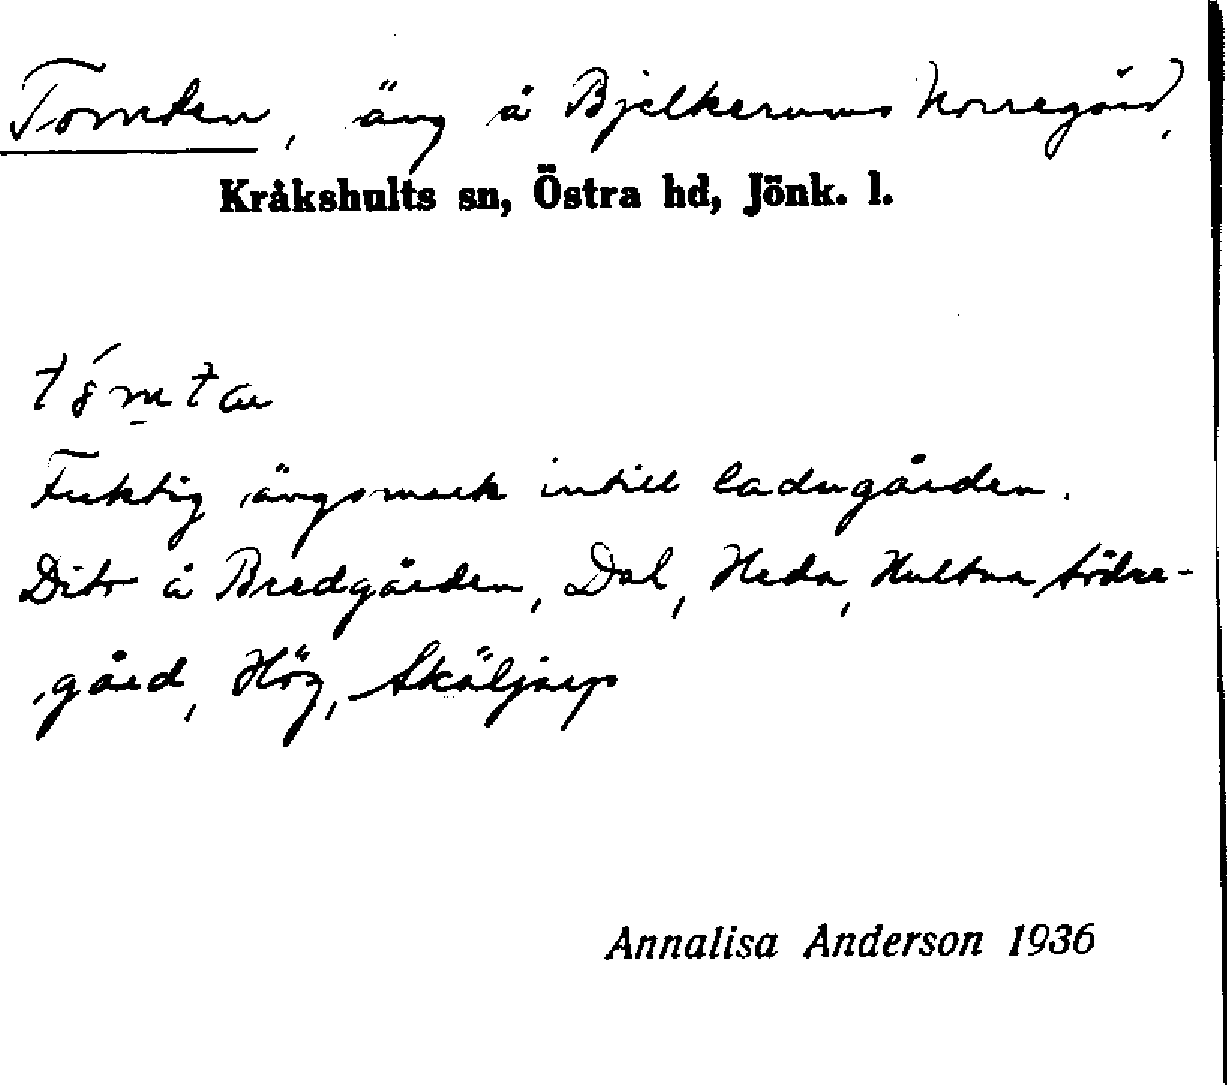 Tomten, äng å Bjelkerums Norregård,
Kråkshults sn, Östra hd, Jönk. l.
Fuktig ängsmark intill ladugården.
Dito å Bredgården, Dal, Heda, Hultna Södre-
gård, Hög, Skäljarp
Annalisa Anderson 1936